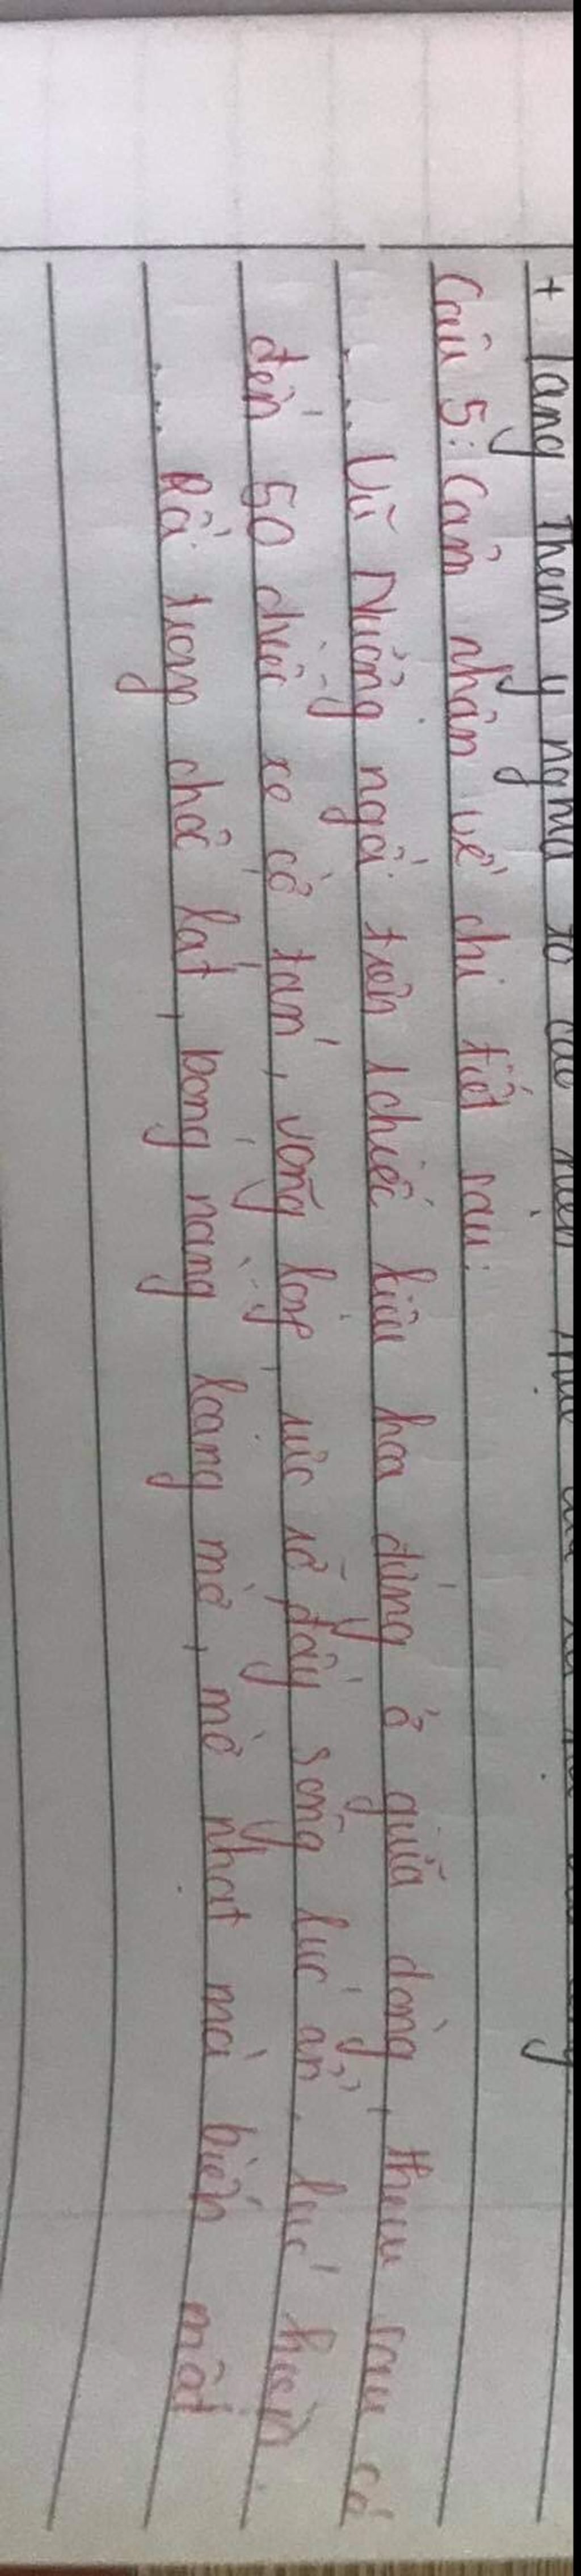 + Tăng thêm ý nghĩa tố cáo
Câu 5: Cảm nhận về chi tiết sau:
... Vũ Nương ngồi trên 1 chiếc kiệu hoa đứng ở giữa dòng, theo sau có
đến 50 chiếc xe cờ tán, võng lọng, rực rỡ đầy sông lúc ẩn, lúc hiện.
... Rồi trong chốc lát, bóng nàng loang mờ, mờ nhạt mà biến mất